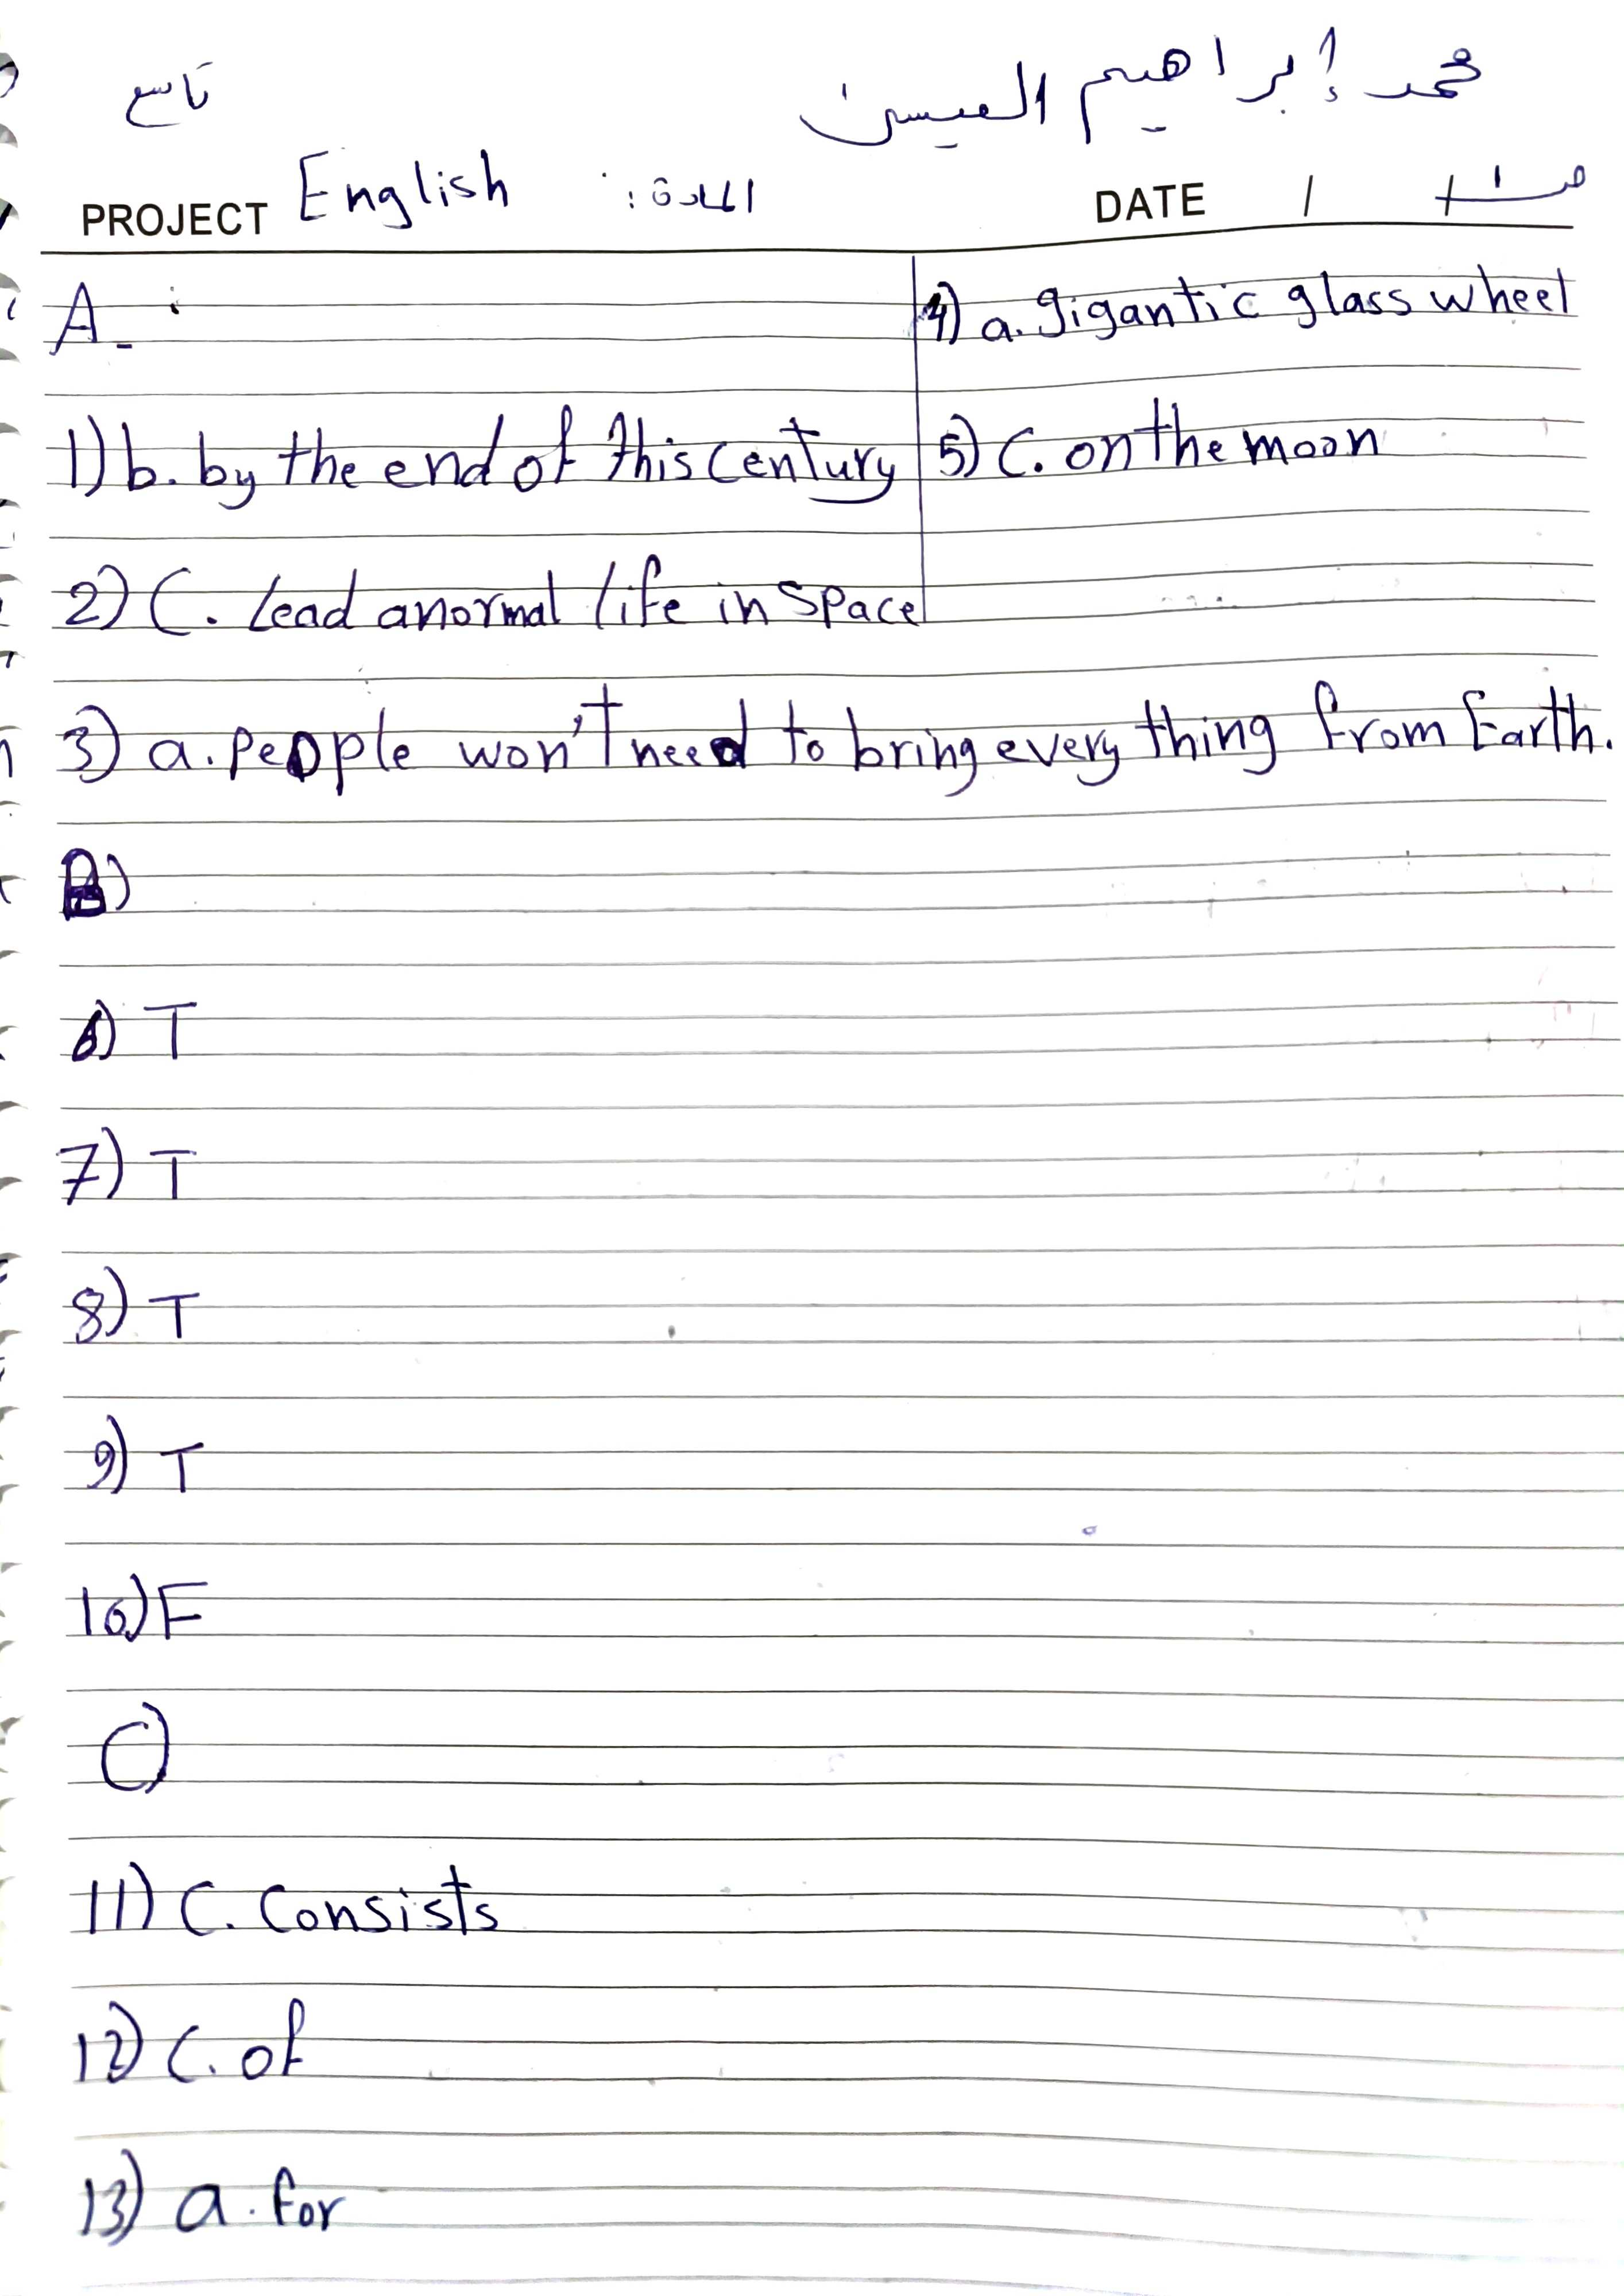 محمد إبراهيم العيسى تاسع
PROJECT English المادة: DATE / /
A-
1) b. by the end of this century
2) C. Lead a normal life in space
3) a. people won't need to bring every thing from Earth.
4) a. gigantic glass wheel
5) C. on the moon
B)
6) T
7) T
8) T
9) T
10) F
C)
11) C. Consists
12) C. of
13) a. for